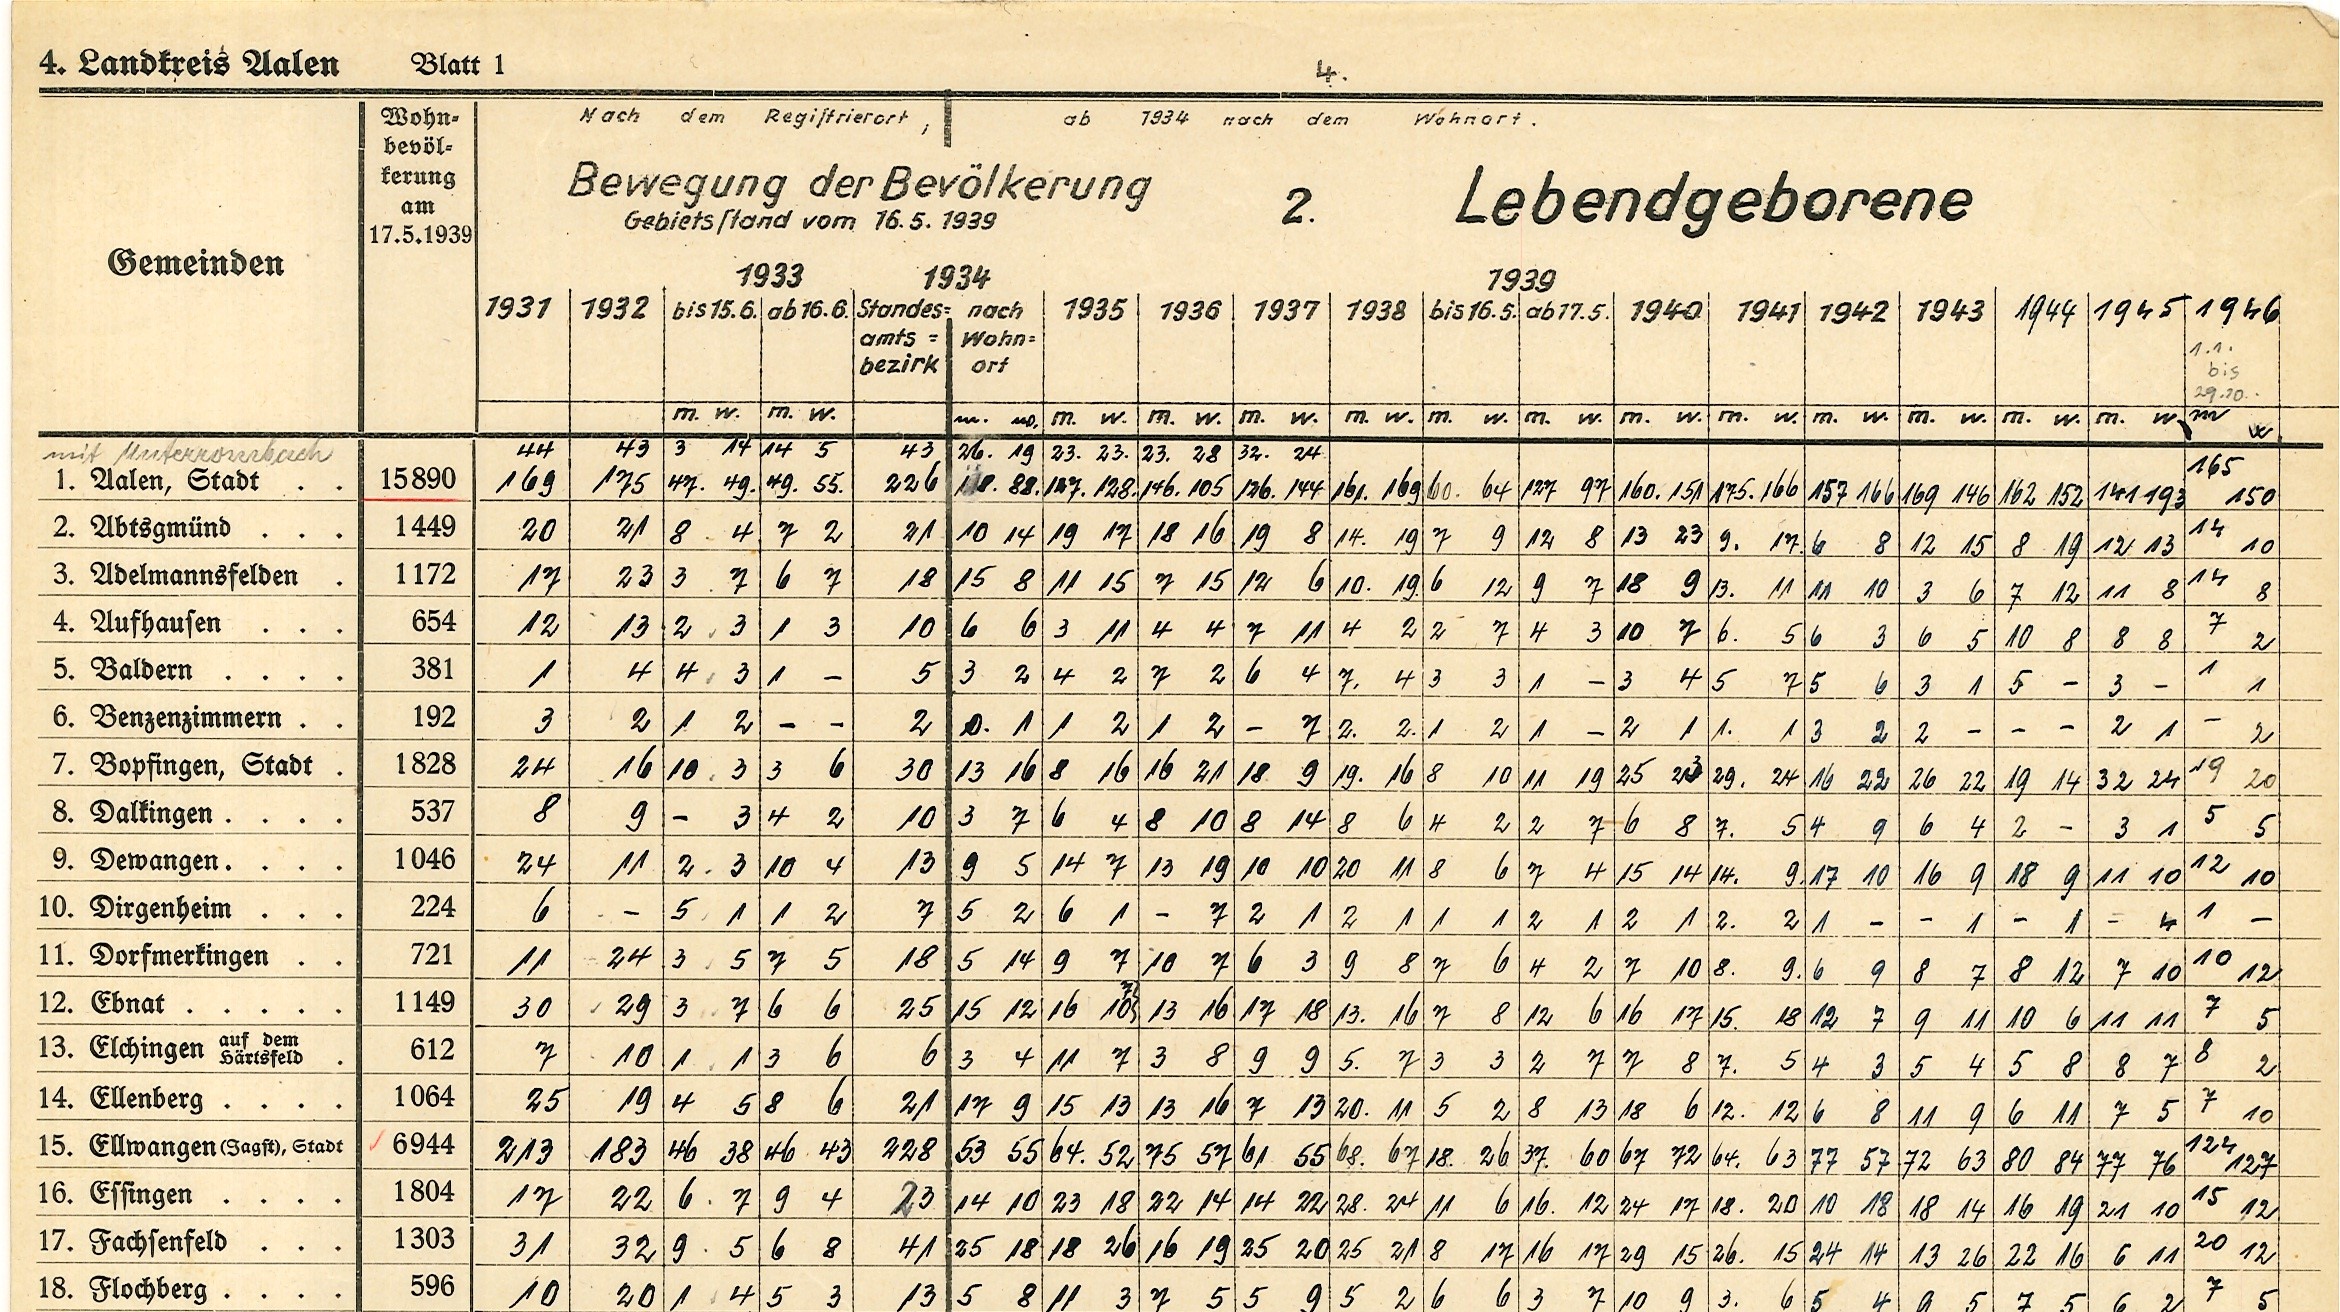 4. Landkreis Aalen Blatt 1 4.
Nach dem Registrierort, ab 1934 nach dem Wohnort.
Bewegung der Bevölkerung 2. Lebendgeborene
Gebietsstand vom 16.5.1939
Gemeinden Wohn-
bevöl-
kerung
am
17.5.1939
1933 1934 1939
1931 1932 bis 15.6. ab 16.6. Standes= nach 1935 1936 1937 1938 bis 16.5. ab 17.5. 1940 1941 1942 1943 1944 1945 1946
amts= Wohn= 1.1.
bezirk ort bis
29.10.
m. w. m. w. m. w. m. w. m. w. m. w. m. w. m. w. m. w. m. w. m. w. m. w. m. w. m. w. m. w. m w.
mit Unterrombach 44 43 3 14 14 5 43 26. 19 23. 23. 23. 28 32. 24
1. Aalen, Stadt . . 15890 169 175 47. 49. 49. 55. 226 88. 127. 128. 146. 105 126. 144 161. 169 60. 64 127 97 160. 151 175. 166 157 166 169 146 162 152 141 193 165 150
2. Abtsgmünd . . . 1449 20 21 8 4 7 2 21 10 14 19 17 18 16 19 8 14. 19 7 9 12 8 13 23 9. 17 6 8 12 15 8 19 12 13 14 10
3. Adelmannsfelden . 1172 17 23 3 7 6 7 18 15 8 11 15 7 15 12 6 10. 19 6 12 9 7 18 9 13. 11 11 10 3 6 7 12 11 8 14 8
4. Aufhausen . . . 654 12 13 2 3 1 3 10 6 6 3 11 4 4 7 11 4 2 2 7 4 3 10 7 6. 5 6 3 6 5 10 8 8 8 7 2
5. Baldern . . . . 381 1 4 4 3 1 - 5 3 2 4 2 7 2 6 4 7. 4 3 3 1 - 3 4 5 7 5 6 3 1 5 - 3 - 1 1
6. Benzenzimmern . . 192 3 2 1 2 - - 2 0. 1 1 2 1 2 - 7 2. 2. 1 2 1 - 2 1 1. 1 3 2 2 - - - 2 1 - 2
7. Bopfingen, Stadt . 1828 24 16 10 3 3 6 30 13 16 8 16 16 21 18 9 19. 16 8 10 11 19 25 23 29. 24 16 22 26 22 19 14 32 24 19 20
8. Dalkingen . . . . 537 8 9 - 3 4 2 10 3 7 6 4 8 10 8 14 8 6 4 2 2 7 6 8 7. 5 4 9 6 4 2 - 3 1 5 5
9. Dewangen . . . . 1046 24 11 2 3 10 4 13 9 5 14 7 13 19 10 10 20 11 8 6 7 4 15 14 14. 9. 17 10 16 9 18 9 11 10 12 10
10. Dirgenheim . . . 224 6 - 5 1 1 2 7 5 2 6 1 - 7 2 1 2 1 1 1 2 1 2 1 2. 2 1 - - 1 - 1 - 4 1 -
11. Dorfmerkingen . . 721 11 24 3 5 7 5 18 5 14 9 7 10 7 6 3 9 8 7 6 4 2 7 10 8. 9. 6 9 8 7 8 12 7 10 10 12
12. Ebnat . . . . . 1149 30 29 3 7 6 6 25 15 12 16 10 13 16 17 18 13. 16 7 8 12 6 16 17 15. 18 12 7 9 11 10 6 11 11 7 5
13. Elchingen auf dem Härtsfeld . 612 7 10 1 1 3 6 6 3 4 11 7 3 8 9 9 5. 7 3 3 2 7 7 8 7. 5 4 3 5 4 5 8 8 7 8 2
14. Ellenberg . . . . 1064 25 19 4 5 8 6 21 17 9 15 13 13 16 7 13 20. 11 5 2 8 13 18 6 12. 12 6 8 11 9 6 11 7 5 7 10
15. Ellwangen (Jagst), Stadt 6944 213 183 46 38 46 43 228 53 55 64. 52 75 57 61 55 68. 67 18. 26 37. 60 67 72 64. 63 77 57 72 63 80 84 77 76 124 127
16. Essingen . . . . 1804 17 22 6 7 9 4 23 14 10 23 18 22 14 14 22 28. 24 11 6 16. 12 24 17 18. 20 10 18 18 14 16 19 21 10 15 12
17. Fachsenfeld . . . 1303 31 32 9 5 6 8 41 25 18 18 26 16 19 25 20 25 21 8 17 16 17 29 15 26. 15 24 14 13 26 22 16 6 11 20 12
18. Flochberg . . . . 596 10 20 1 4 5 3 13 5 8 11 3 7 5 5 9 5 2 6 6 3 7 10 9 3. 6 5 4 9 5 7 5 6 2 7 5